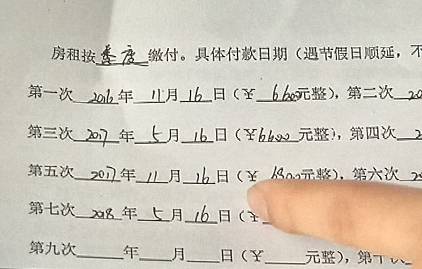 房租按季度缴付。具体付款日期（遇节假日顺延，不
第一次2016年11月16日（￥6600元整），第二次20
第三次2017年5月16日（￥6600元整），第四次2
第五次2017年11月16日（￥6800元整），第六次20
第七次2018年5月16日（￥
第九次 年 月 日（￥ 元整），第十次